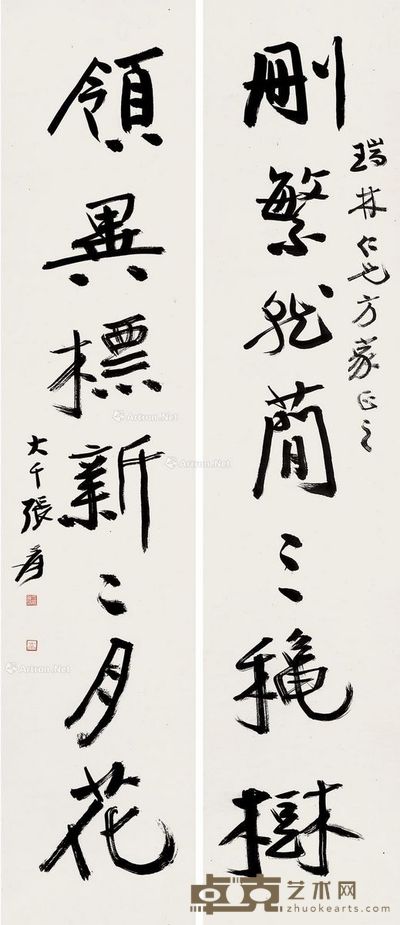 瑞林仁兄方家正之
刪繁就簡三穐樹
領異標新二月花
大千張爰
Artron.Net
Artron.Net
Artron.Net
卓克艺术网
zhuokearts.com